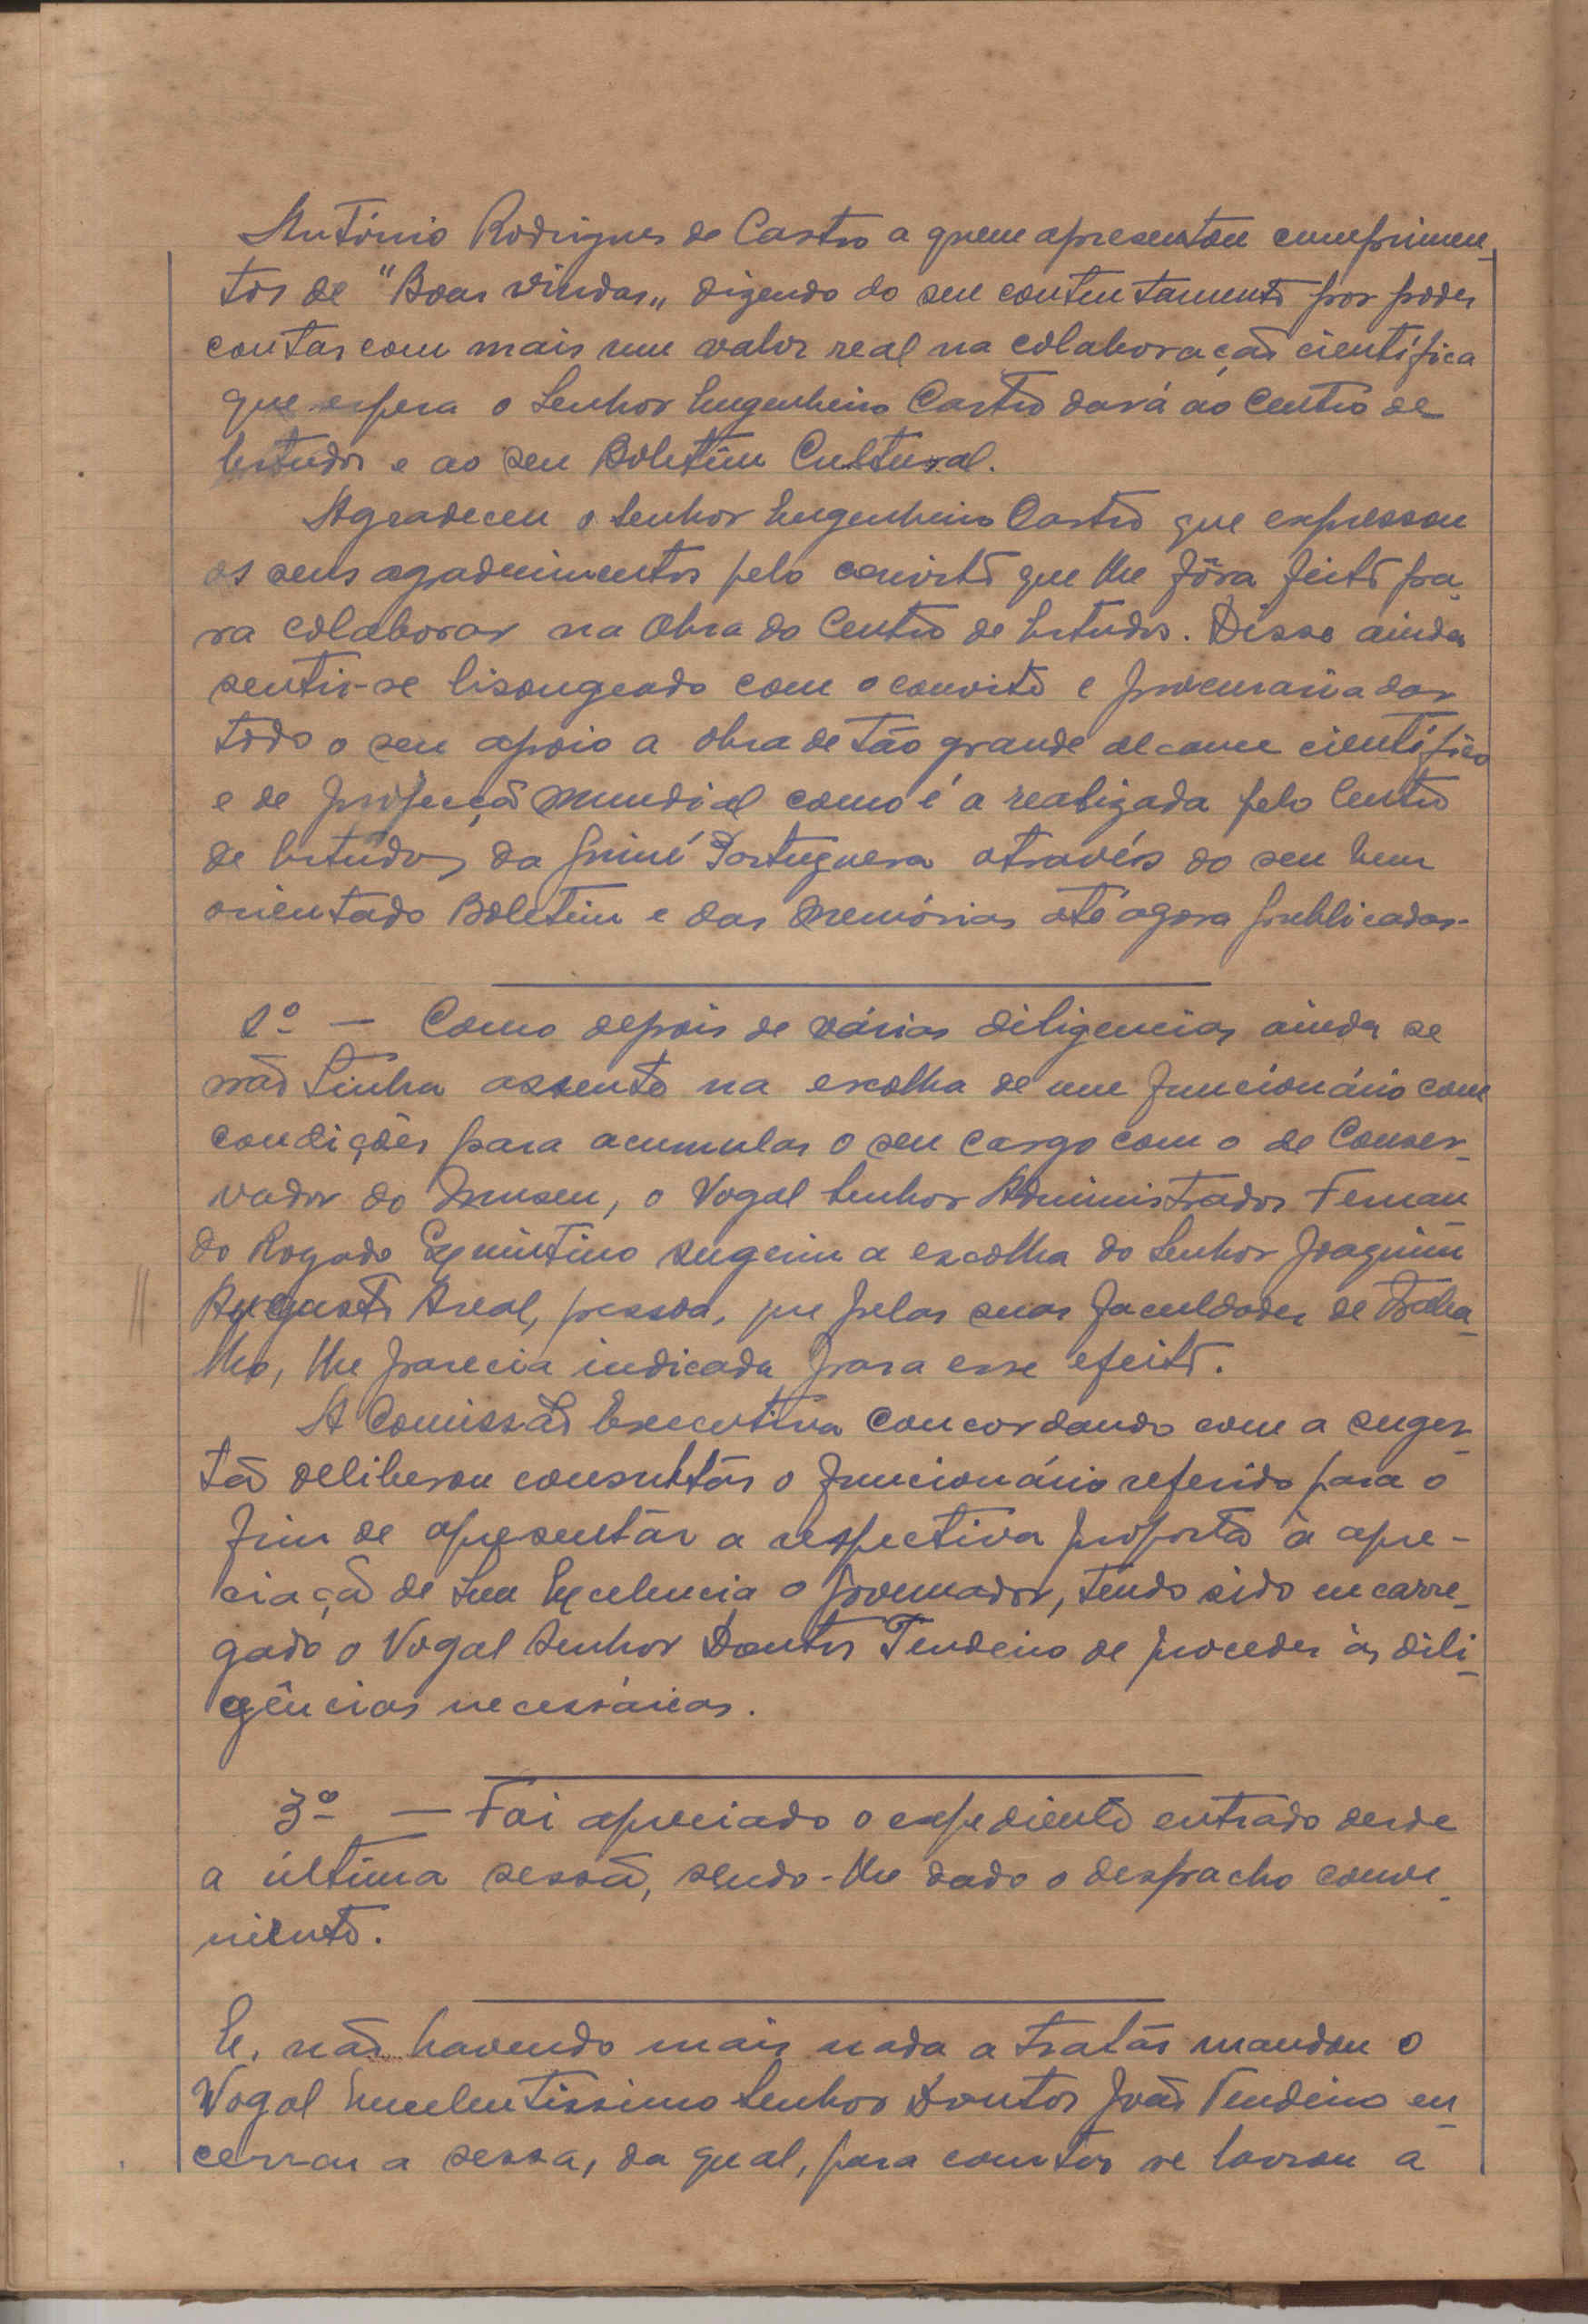 António Rodrigues de Castro a quem apresentou cumprimen-
tos de "Boas vindas" dizendo do seu contentamento por poder
contar com mais um valor real na colaboração científica
que espera o Senhor Engenheiro Castro dará ao Centro de
Estudos e ao seu Boletim Cultural.
Agradeceu o Senhor Engenheiro Castro que expressou
os seus agadecimentos pelo convite que lhe fôra feito pa-
ra colaborar na Obra do Centro de Estudos. Disse ainda
sentir-se lisongeado com o convite e procuraria dar
todo o seu apoio a obra de tão grande alcance científico
e de projecção mundial como é a realizada pelo Centro
de Estudos da Guiné Portuguesa através do seu bem
orientado Boletim e das Memórias até agora publicadas.
2º — Como depois de várias diligencias ainda se
não tinha assente na escolha de um funcionário com
condições para acumular o seu cargo com o de Conser-
vador do Museu, o Vogal Senhor Administrador Fernan-
do Rogado Quintino sugeriu a escolha do Senhor Joaquim
Augusto Areal, pessoa, que pelas suas faculdades de traba-
lho, lhe parecia indicada para esse efeito.
A Comissão Executiva concordando com a suges-
tão deliberou consultar o funcionário referido para o
fim de apresentar a respectiva proposta à apre-
ciação de Sua Excelencia o Governador, tendo sido encarre-
gado o Vogal Senhor Doutor Tendeiro de proceder às dili-
gências necessárias.
3º — Foi apreciado o expediente entrado desde
a última sessão, sendo-lhe dado o despacho conve-
niente.
E, não havendo mais nada a tratar mandou o
Vogal Excelentissimo Senhor Doutor João Tendeiro en-
cerrar a sessa, da qual, para constar se lavrou a